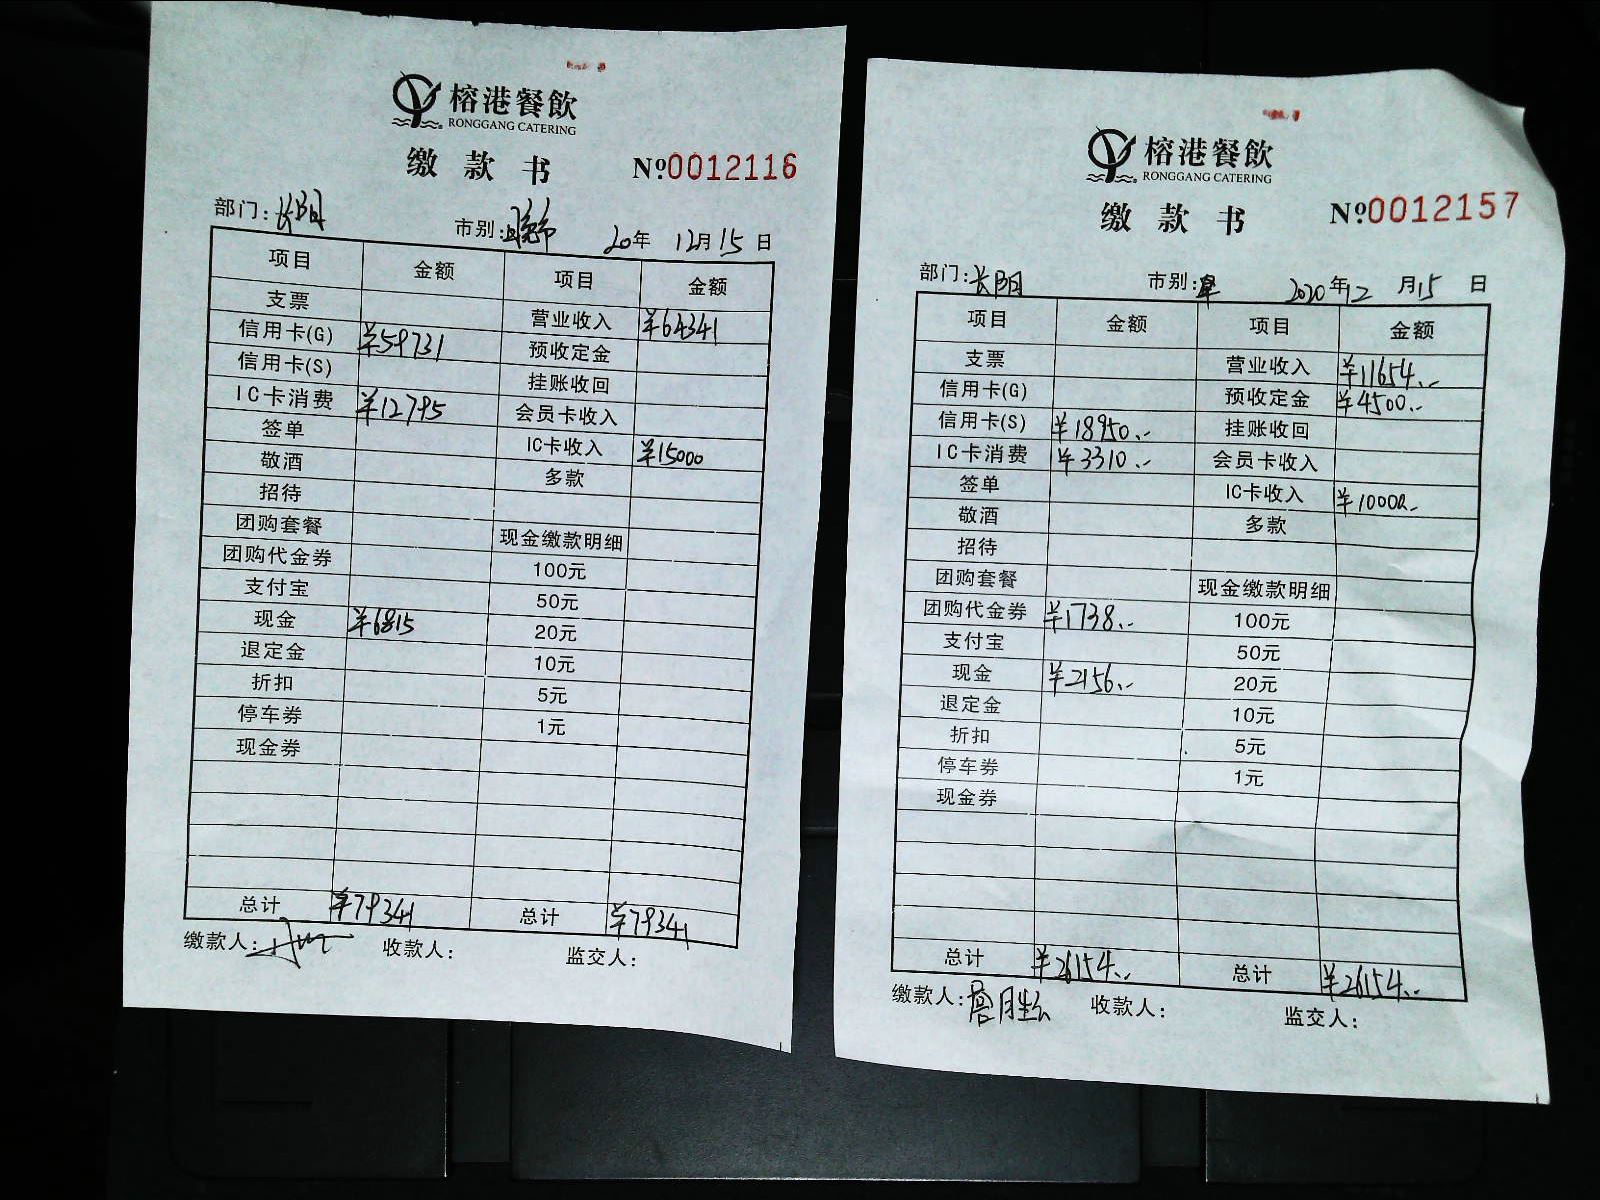 榕港餐飲
RONGGANG CATERING
缴款书 №0012116
部门:长阳 市别:晚市 20年 12月 15日
项目 金额 项目 金额
支票 营业收入 ¥64341
信用卡(G) ¥59731 预收定金
信用卡(S) 挂账收回
IC卡消费 ¥12795 会员卡收入
签单 IC卡收入 ¥15000
敬酒 多款
招待
团购套餐 现金缴款明细
团购代金券 100元
支付宝 50元
现金 ¥6815 20元
退定金 10元
折扣 5元
停车券 1元
现金券
总计 ¥79341 总计 ¥79341
缴款人: 收款人: 监交人:
榕港餐飲
RONGGANG CATERING
缴款书 №0012157
部门:长阳 市别: 2020年12月15日
项目 金额 项目 金额
支票 营业收入 ¥11654.-
信用卡(G) 预收定金 ¥4500.-
信用卡(S) ¥18950.- 挂账收回
IC卡消费 ¥3310.- 会员卡收入
签单 IC卡收入 ¥10000.-
敬酒 多款
招待
团购套餐 现金缴款明细
团购代金券 ¥1738.- 100元
支付宝 50元
现金 ¥2156.- 20元
退定金 10元
折扣 5元
停车券 1元
现金券
总计 ¥26154.- 总计 ¥26154.-
缴款人: 收款人: 监交人: